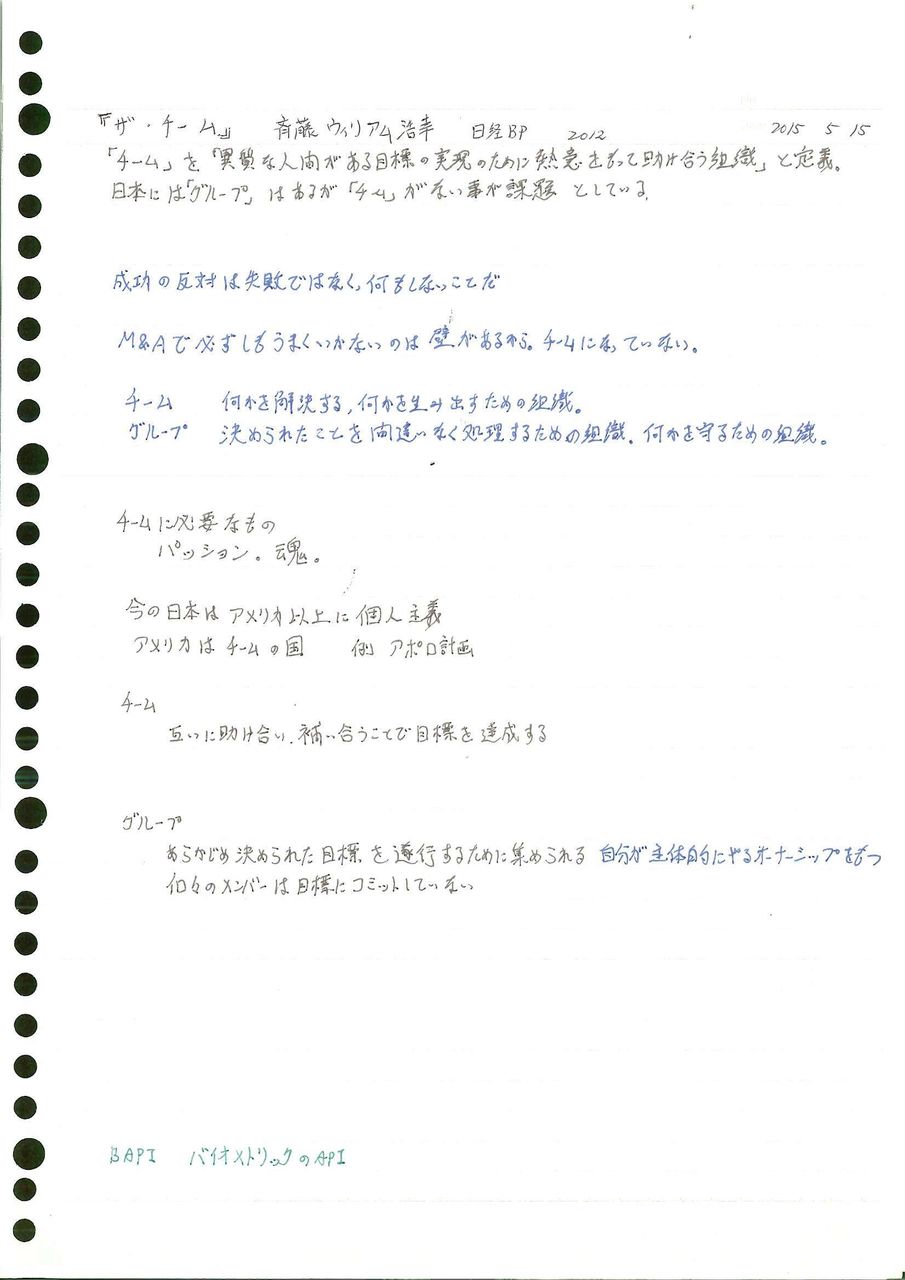 『ザ・チーム』 斉藤 ウィリアム 浩幸 日経BP 2012 2015 5 15
「チーム」を「異質な人間がある目標の実現のために熱意をもって助け合う組織」と定義。
日本には「グループ」はあるが「チーム」がない事が課題 としている。
成功の反対は失敗ではなく、何もしないことだ
M&Aで必ずしもうまくいかないのは 壁があるから。チームになっていない。
チーム 何かを解決する、何かを生み出すための組織。
グループ 決められたことを間違いなく処理するための組織。何かを守るための組織。
チームに必要なもの
パッション。魂。
今の日本は アメリカ以上に個人主義
アメリカは チームの国 例 アポロ計画
チーム
互いに助け合い、補い合うことで目標を達成する
グループ
あらかじめ決められた目標を遂行するために集められる 自分が主体的にやるオーナーシップをもつ
個々のメンバーは目標にコミットしていない
BAPI バイオメトリックのAPI